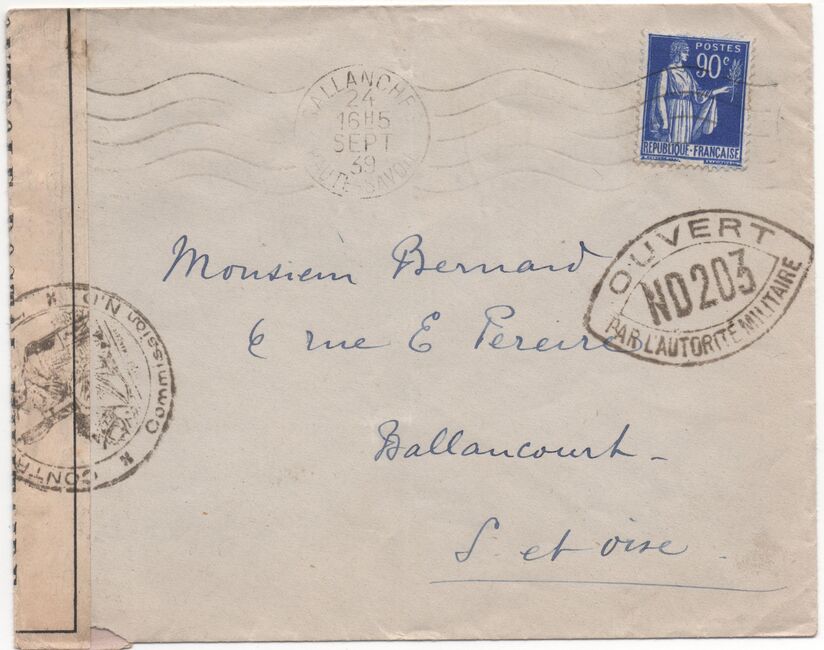 SALLANCHES
24
16H5
SEPT
39
HAUTE-SAVOIE
POSTES
90c
RÉPUBLIQUE-FRANÇAISE
OUVERT
ND203
PAR L'AUTORITÉ MILITAIRE
Monsieur Bernard
6 rue E Pereire
Ballancourt -
S. et oise.
Commission N.D
CONTR